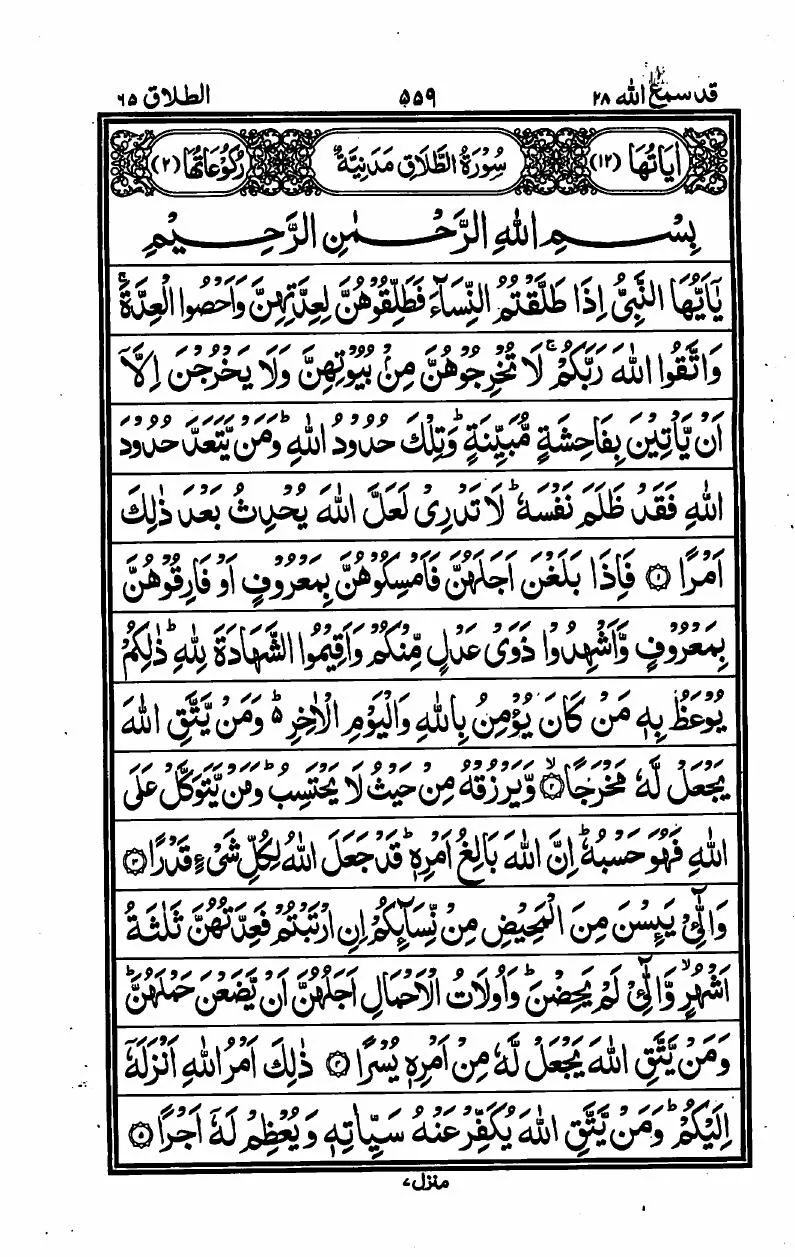 قد سمع الله ۲۸ ۵۵۹ الطلاق ۶۵
اٰيَاتُهَا (۱۲) سُوْرَةُ الطَّلَاقِ مَدَنِيَّةٌ رُكُوْعَاتُهَا (۲)
بِسْمِ اللهِ الرَّحْمٰنِ الرَّحِيْمِ
يٰۤاَيُّهَا النَّبِيُّ اِذَا طَلَّقْتُمُ النِّسَآءَ فَطَلِّقُوْهُنَّ لِعِدَّتِهِنَّ وَاَحْصُوا الْعِدَّةَ ۚ
وَاتَّقُوا اللهَ رَبَّكُمْ ۚ لَا تُخْرِجُوْهُنَّ مِنْۢ بُيُوْتِهِنَّ وَلَا يَخْرُجْنَ اِلَّاۤ
اَنْ يَّاْتِيْنَ بِفَاحِشَةٍ مُّبَيِّنَةٍ ؕ وَتِلْكَ حُدُوْدُ اللهِ ؕ وَمَنْ يَّتَعَدَّ حُدُوْدَ
اللهِ فَقَدْ ظَلَمَ نَفْسَهٗ ؕ لَا تَدْرِىْ لَعَلَّ اللهَ يُحْدِثُ بَعْدَ ذٰلِكَ
اَمْرًا ۝۱ فَاِذَا بَلَغْنَ اَجَلَهُنَّ فَاَمْسِكُوْهُنَّ بِمَعْرُوْفٍ اَوْ فَارِقُوْهُنَّ
بِمَعْرُوْفٍ وَّاَشْهِدُوْا ذَوَىْ عَدْلٍ مِّنْكُمْ وَاَقِيْمُوا الشَّهَادَةَ لِلّٰهِ ؕ ذٰلِكُمْ
يُوْعَظُ بِهٖ مَنْ كَانَ يُؤْمِنُ بِاللهِ وَالْيَوْمِ الْاٰخِرِ ؕ۵ وَمَنْ يَّتَّقِ اللهَ
يَجْعَلْ لَّهٗ مَخْرَجًا ۙ۝۲ وَّيَرْزُقْهُ مِنْ حَيْثُ لَا يَحْتَسِبُ ؕ وَمَنْ يَّتَوَكَّلْ عَلَى
اللهِ فَهُوَ حَسْبُهٗ ؕ اِنَّ اللهَ بَالِغُ اَمْرِهٖ ؕ قَدْ جَعَلَ اللهُ لِكُلِّ شَىْءٍ قَدْرًا ۝۳
وَالّٰٓـِٔىْ يَئِسْنَ مِنَ الْمَحِيْضِ مِنْ نِّسَآئِكُمْ اِنِ ارْتَبْتُمْ فَعِدَّتُهُنَّ ثَلٰثَةُ
اَشْهُرٍ ۙ وَّالّٰٓـِٔىْ لَمْ يَحِضْنَ ؕ وَاُولَاتُ الْاَحْمَالِ اَجَلُهُنَّ اَنْ يَّضَعْنَ حَمْلَهُنَّ ؕ
وَمَنْ يَّتَّقِ اللهَ يَجْعَلْ لَّهٗ مِنْ اَمْرِهٖ يُسْرًا ۝۴ ذٰلِكَ اَمْرُ اللهِ اَنْزَلَهٗۤ
اِلَيْكُمْ ؕ وَمَنْ يَّتَّقِ اللهَ يُكَفِّرْ عَنْهُ سَيِّاٰتِهٖ وَيُعْظِمْ لَهٗۤ اَجْرًا ۝۵
منزل۷